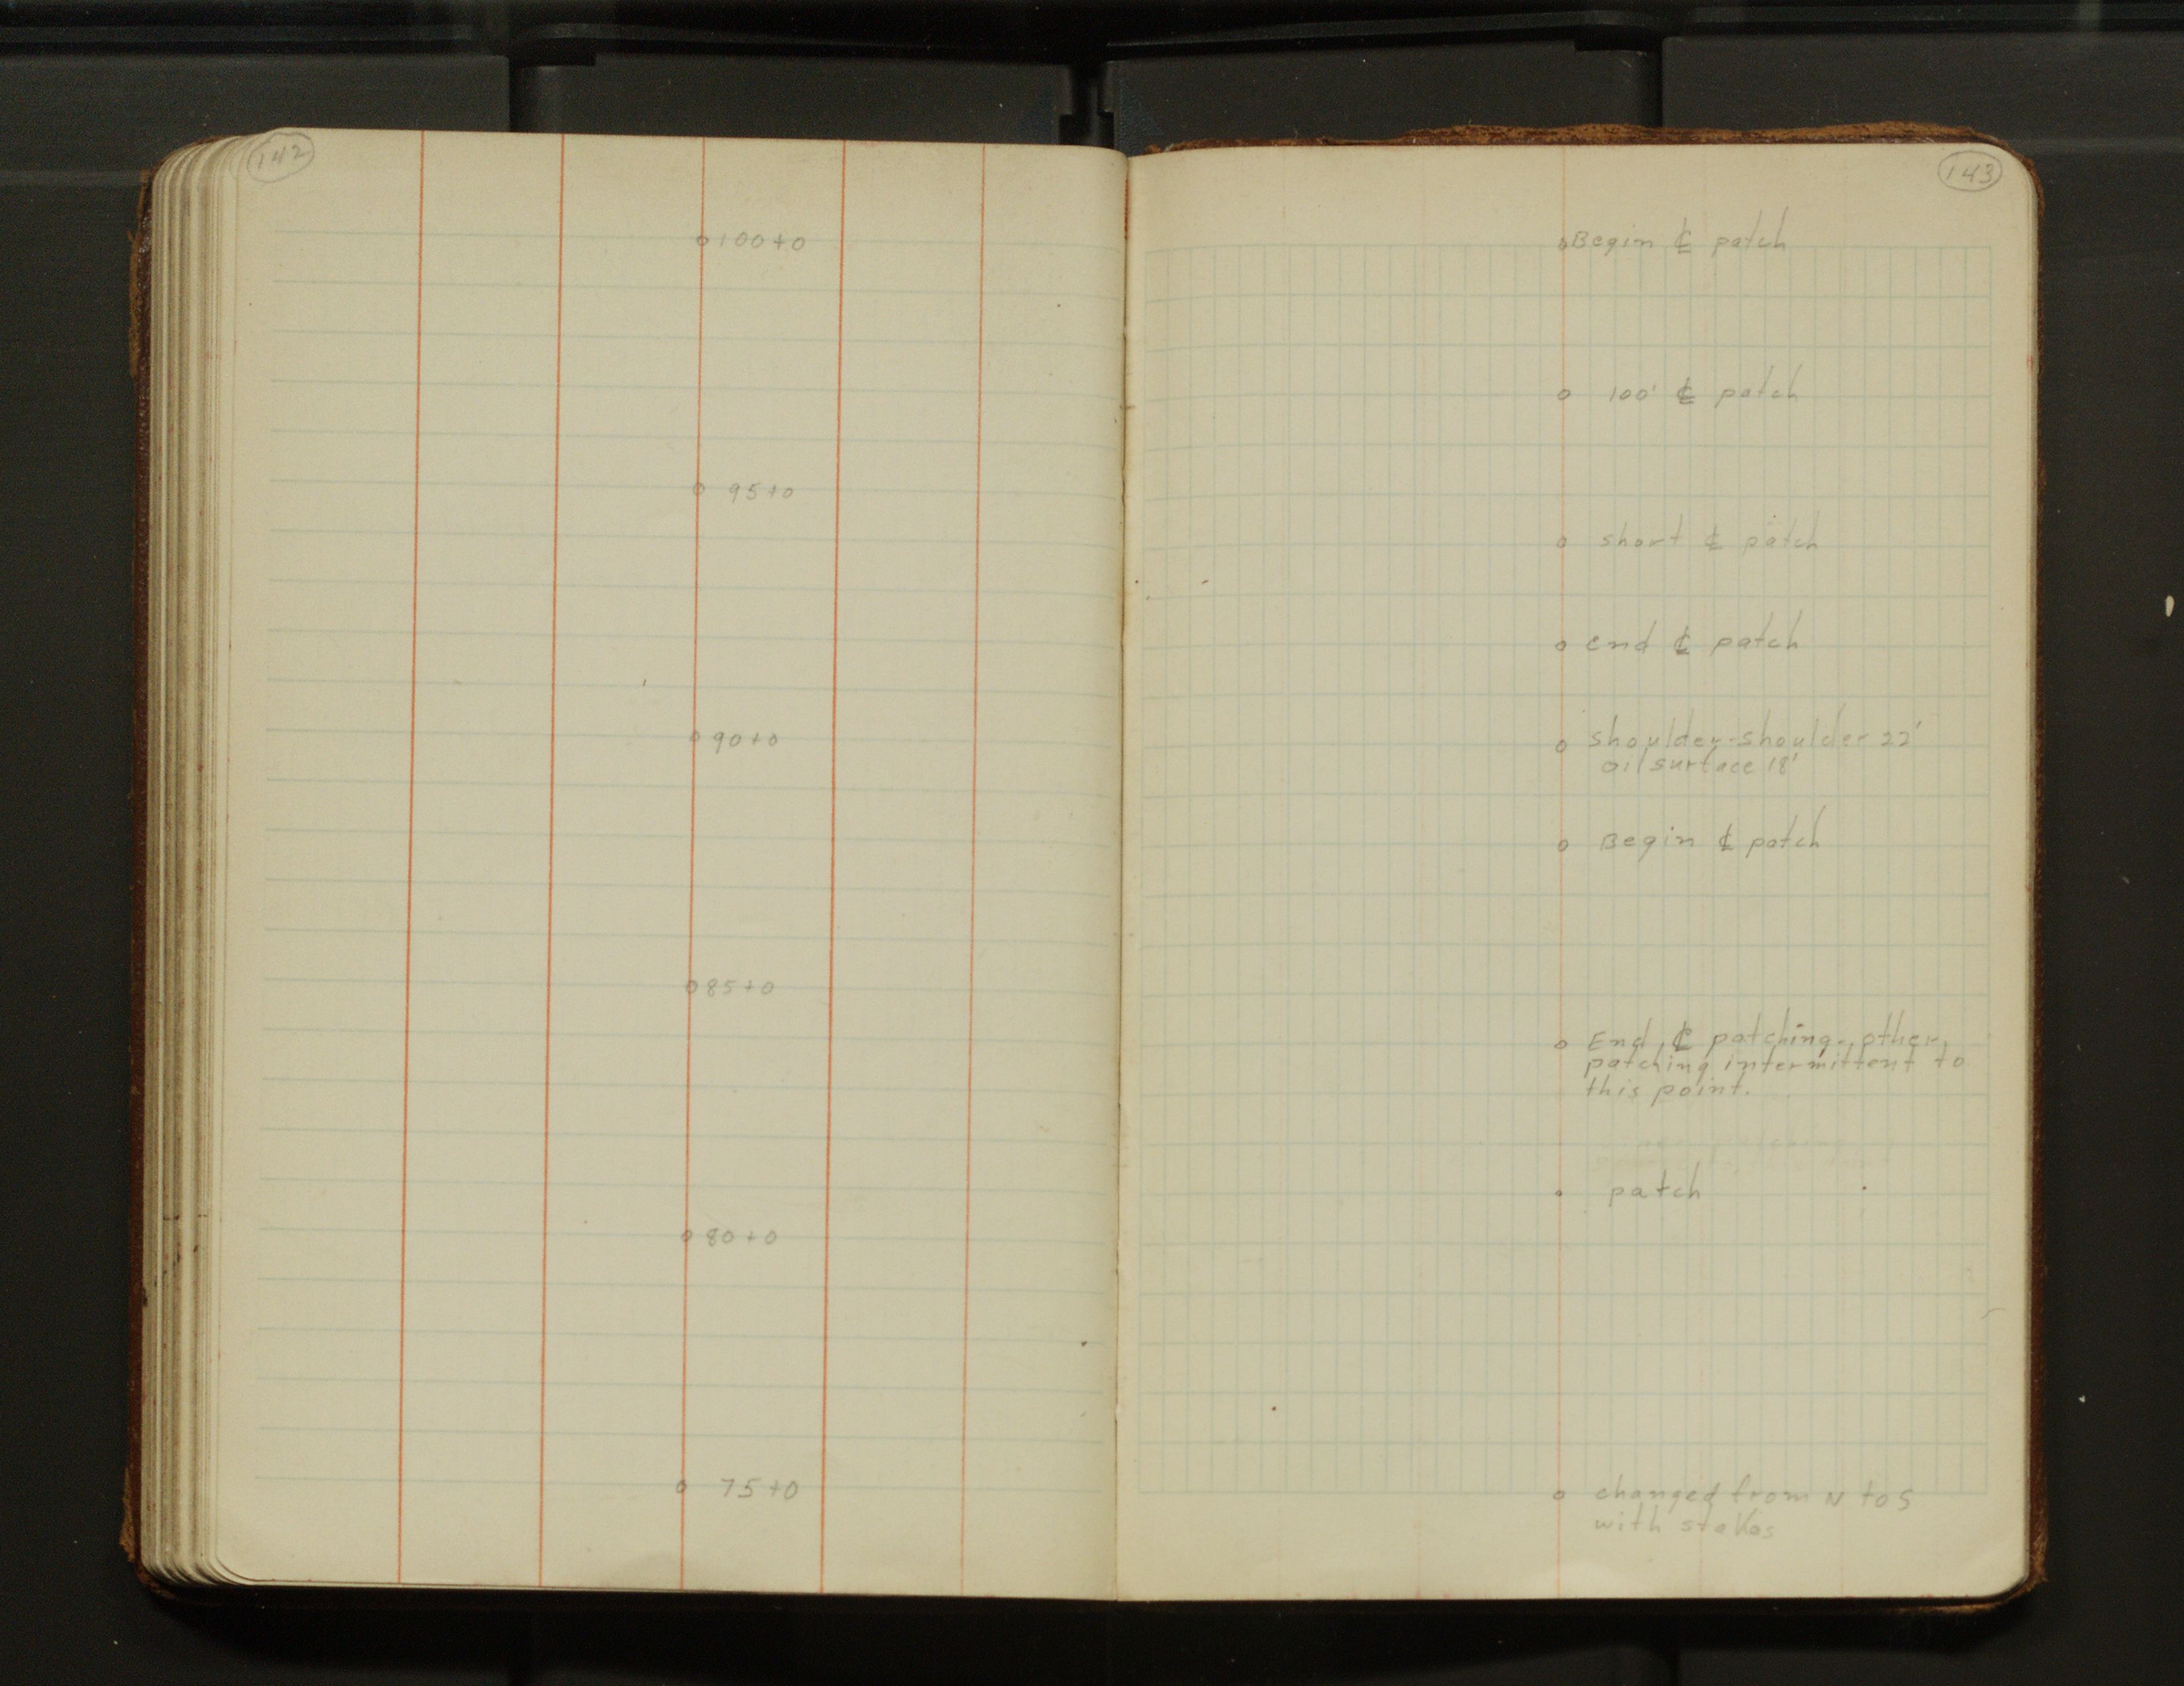 142
100+0
95+0
90+0
85+0
80+0
75+0
143
Begin ℄ patch
100' ℄ patch
short ℄ patch
end ℄ patch
shoulder-shoulder 22'
oil surface 18'
Begin ℄ patch
End ℄ patching-, other
patching intermittent to
this point.
patching
patch
changed from N to S
with stakes